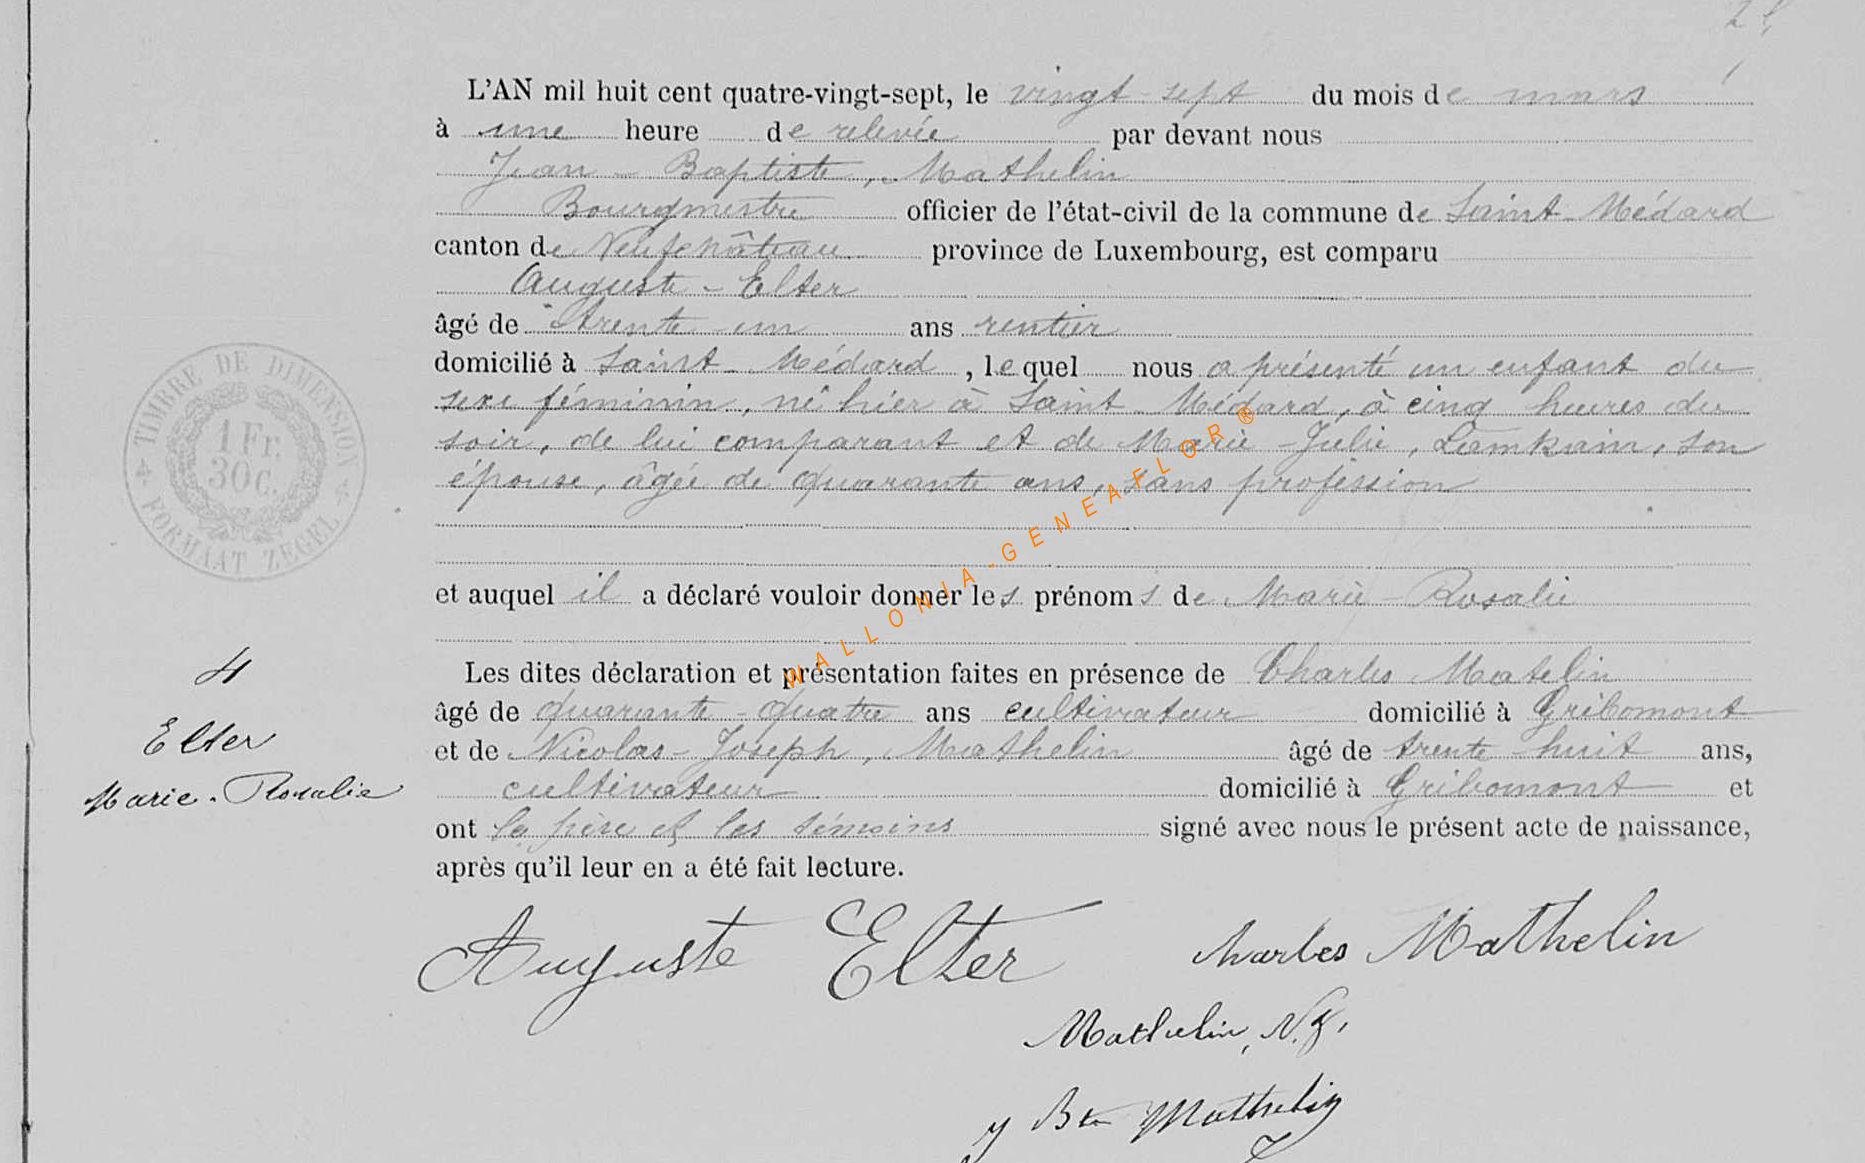 L'AN mil huit cent quatre-vingt-sept, le vingt-sept du mois de mars
à une heure de relevée par devant nous
Jean-Baptiste, Mathelin
Bourgmestre officier de l'état-civil de la commune de Saint-Médard
canton de Neufchâteau province de Luxembourg, est comparu
Auguste-Elter
âgé de trente-un ans rentier
domicilié à Saint-Médard, lequel nous a présenté un enfant du
sexe féminin, né hier à Saint-Médard, à cinq heures du
soir, de lui comparant et de Marie-Julie, Lamkain, son
épouse, âgée de quarante ans, sans profession
et auquel il a déclaré vouloir donner les prénoms de Marie-Rosalie
Les dites déclaration et présentation faites en présence de Charles Matelin
âgé de quarante-quatre ans cultivateur domicilié à Gribomont
et de Nicolas-Joseph, Mathelin âgé de trente-huit ans,
cultivateur domicilié à Gribomont et
ont le père et les témoins signé avec nous le présent acte de naissance,
après qu'il leur en a été fait lecture.
4
Elter
Marie-Rosalie
TIMBRE DE DIMENSION
1 Fr.
30 C.
FORMAAT ZEGEL
WALLONIA-GENEAFLOR®
Auguste Elter Charles Mathelin
Mathelin, N.J.
J Bte Mathelin